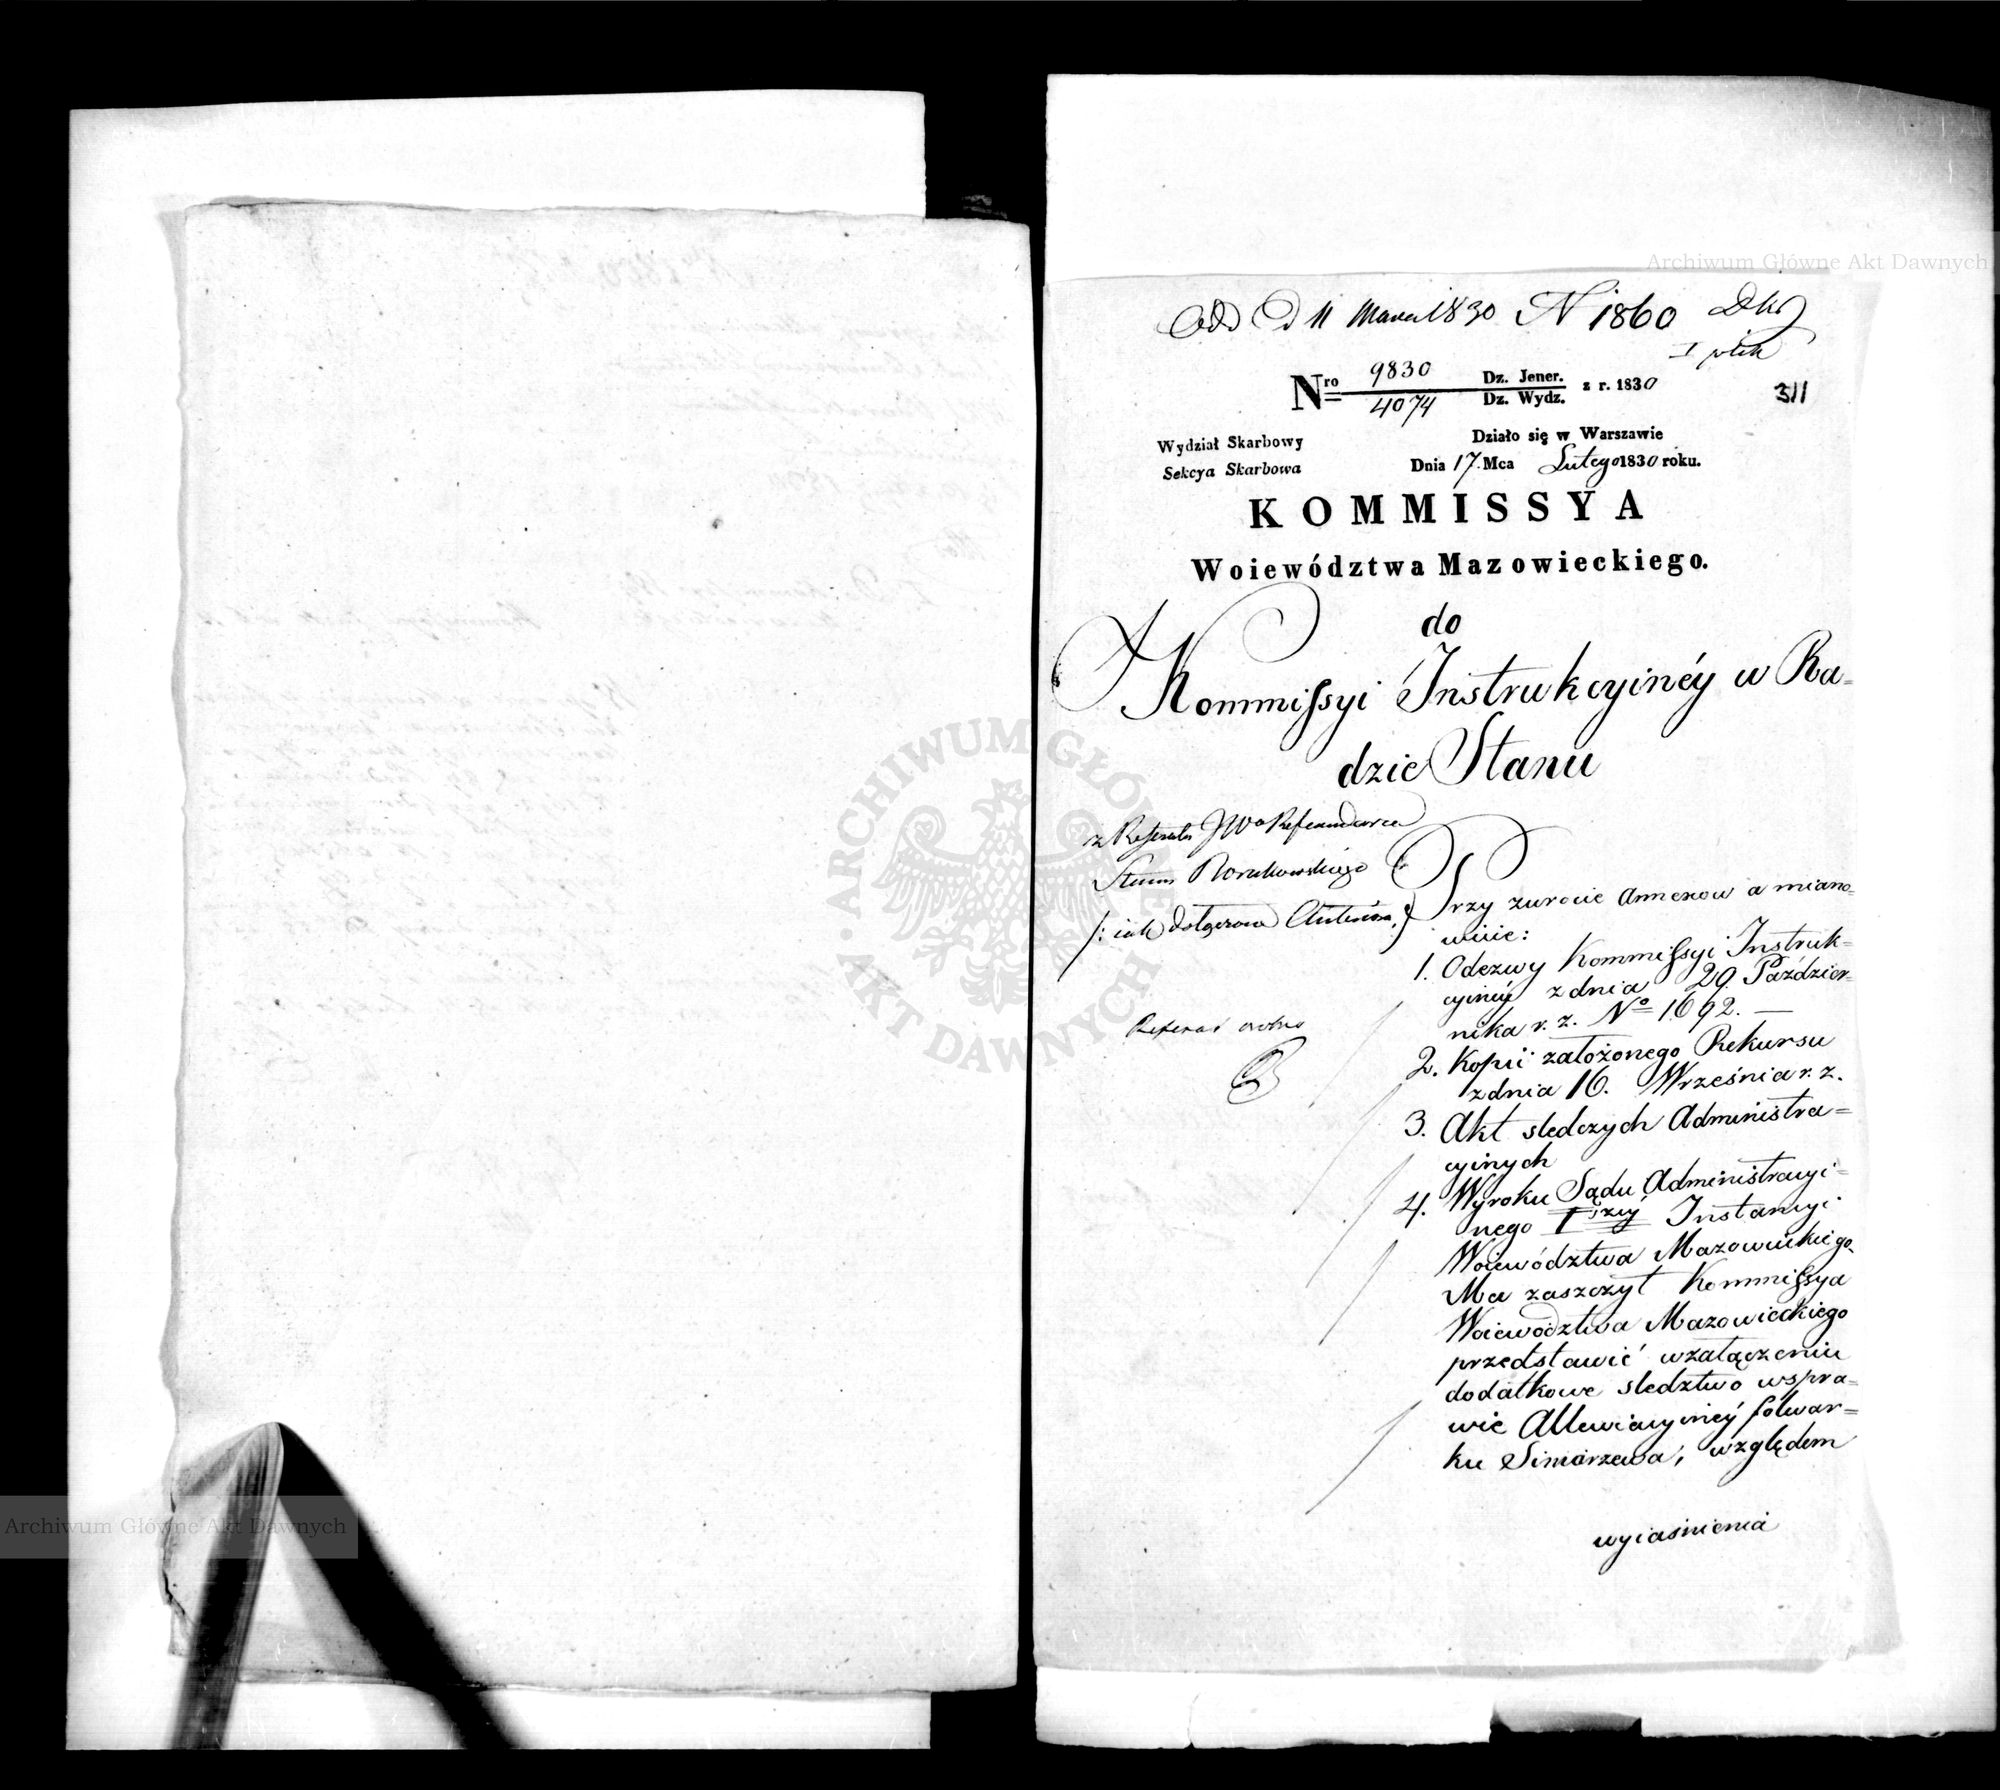 Archiwum Główne Akt Dawnych
d 11 Marca 1830 N 1860
I plik
Nro 9830 Dz. Jener. z r. 1830
4074 Dz. Wydz.
311
Wydział Skarbowy
Sekcya Skarbowa
Działo się w Warszawie
Dnia 17. Mca Lutego 1830 roku.
KOMMISSYA
Woiewództwa Mazowieckiego.
do
Kommissyi Instrukcyinéy w Ra=
dzie Stanu
z Referatu JWo Referendarza
Stanu
/: iak dołączona
Przy zwrocie Annexow a miano=
wicie:
1. Odezwy Kommissyi Instruk=
cyinéy z dnia 29. Paździer=
nika r. z. No 1692. —
2. Kopii założonego Rekursu
z dnia 16. Września r. z.
3. Akt sledczych Administra=
cyinych
4. Wyroku Sądu Administracyi=
nego Iszéy Instancyi
Woiewództwa Mazowieckiego.
Ma zaszczyt Kommissya
Woiewództwa Mazowieckiego
przedstawić wzałączeniu
dodatkowe sledztwo wspra=
wie Allewiacyinéy folwar=
ku względem
wyiaśnienia
ARCHIWUM GŁÓWNE
AKT DAWNYCH
Archiwum Główne Akt Dawnych